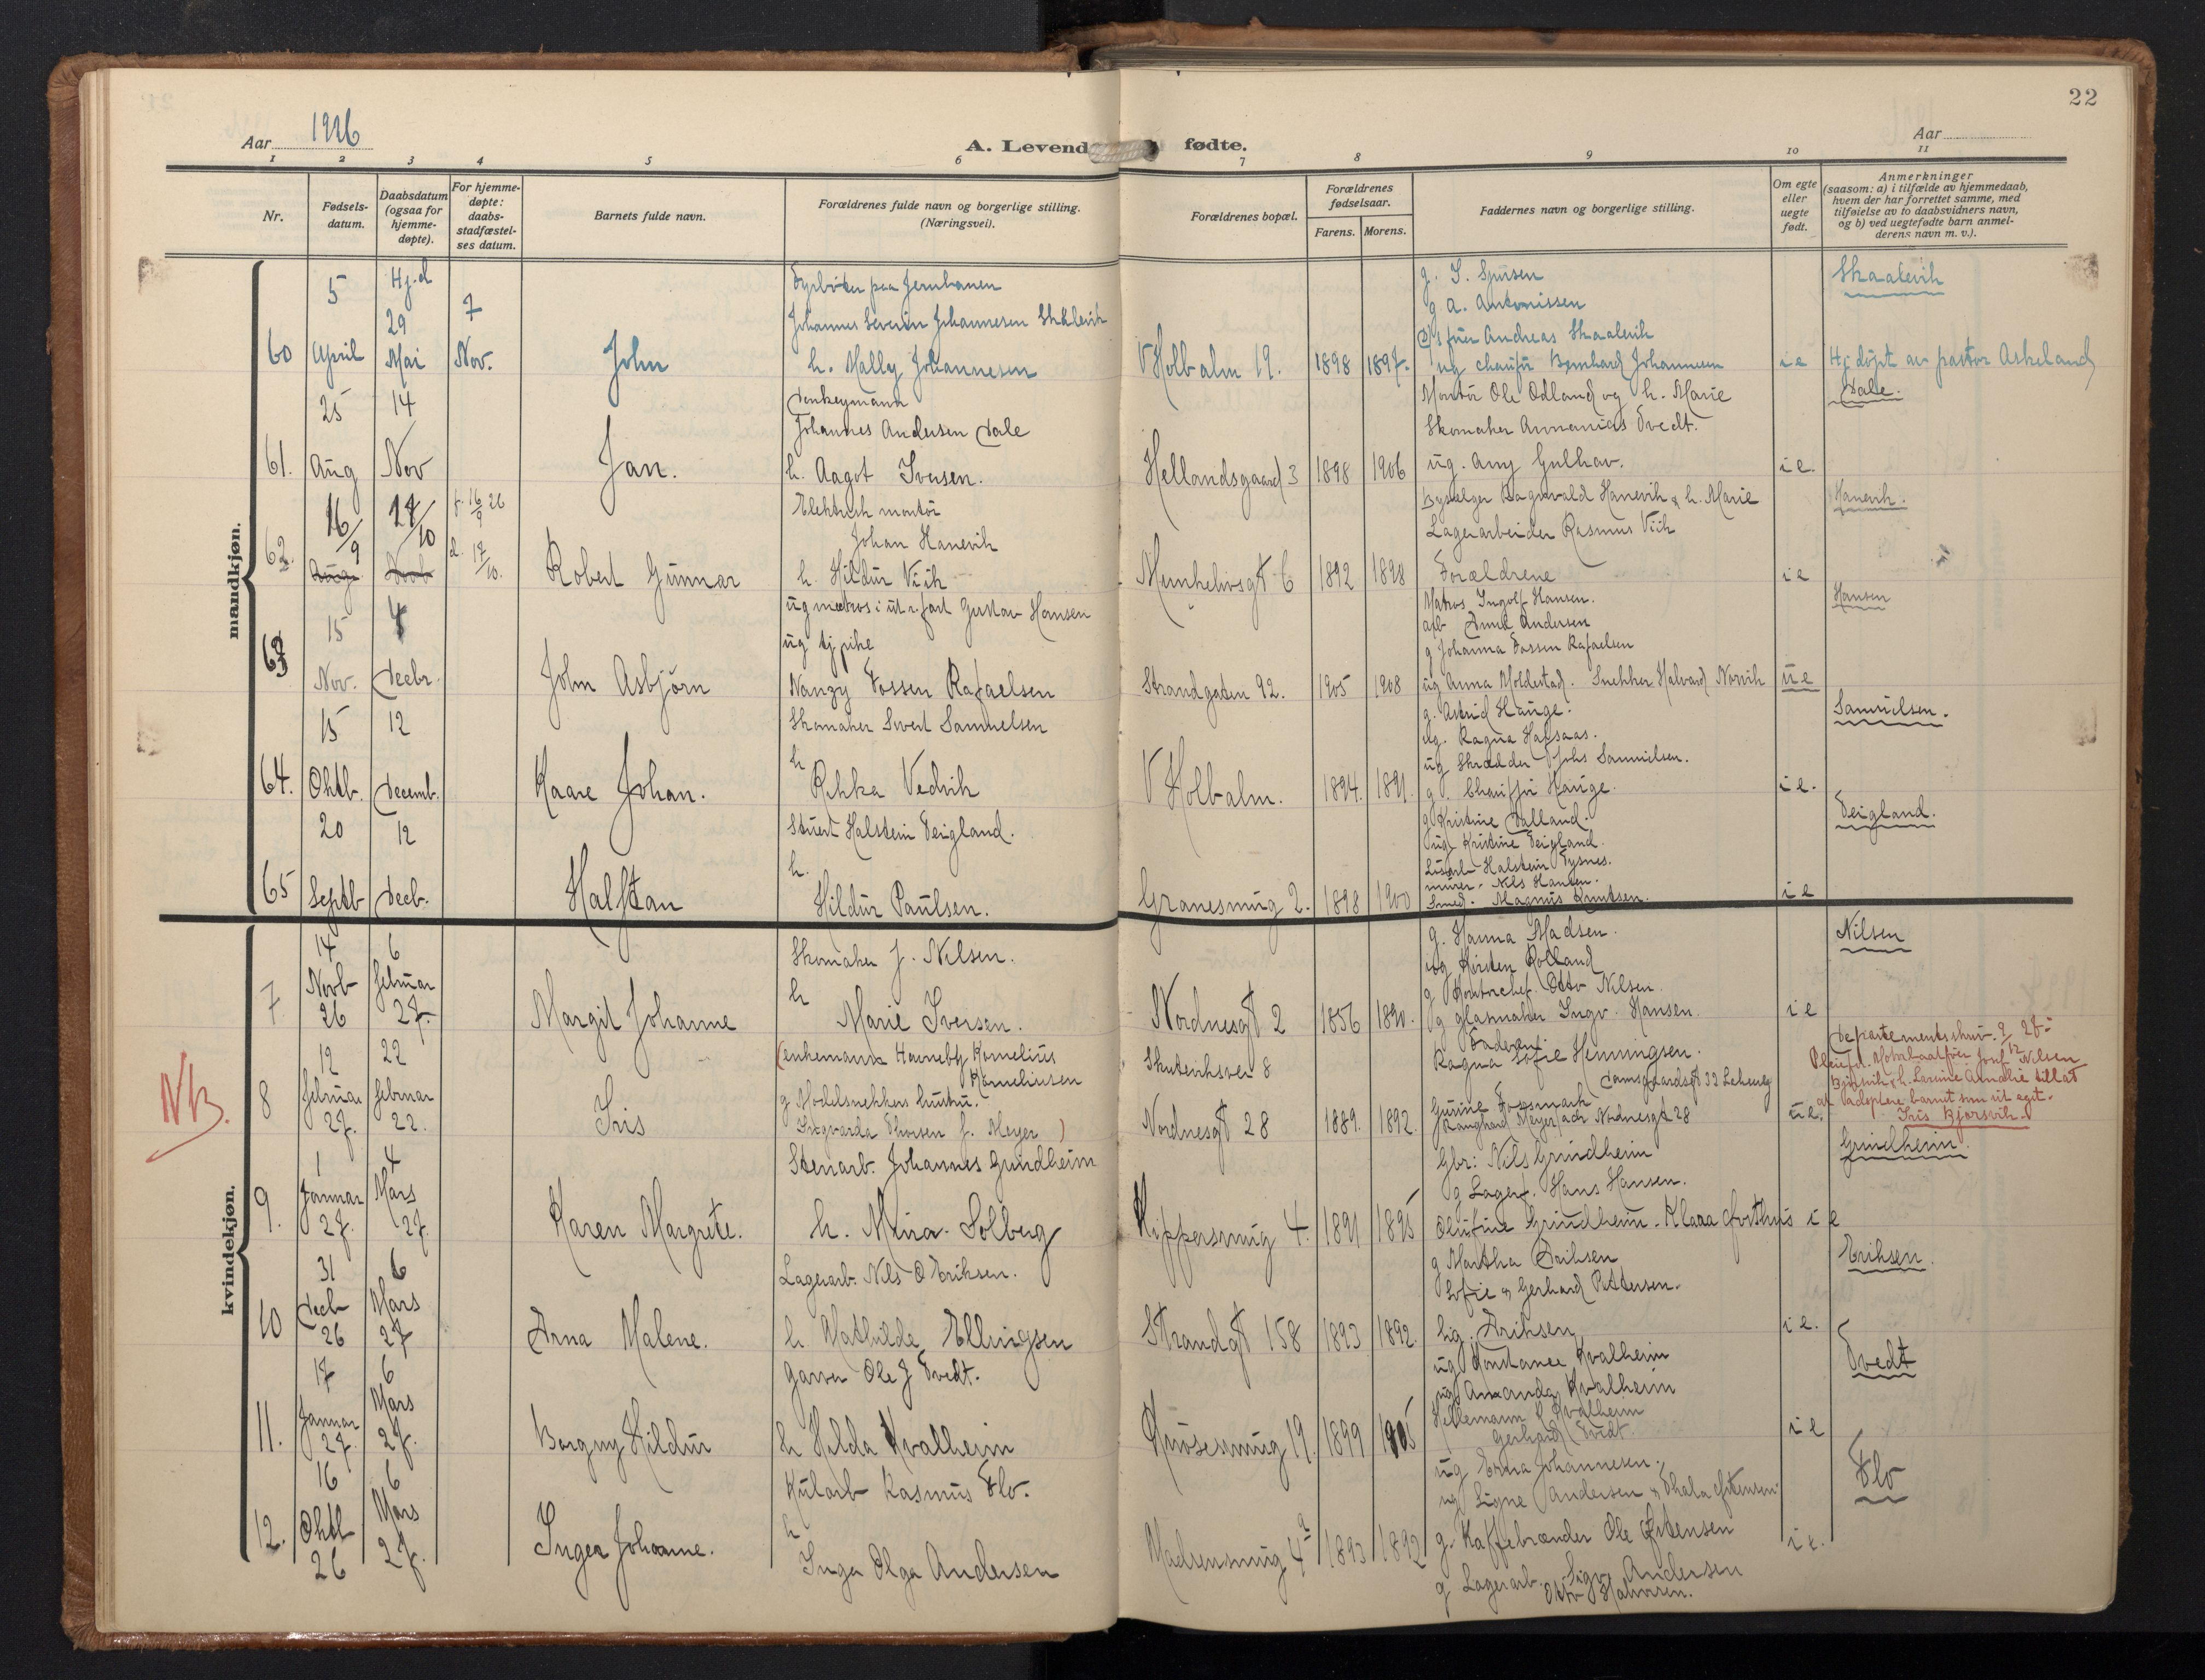 22
Aar 1926
A. Levend fødte.
Aar
1 2 3 4 5 6 7 8 9 10 11
Nr.
Fødsels-
datum.
Daabsdatum
(ogsaa for
hjemme-
døpte).
For hjemme-
døpte:
daabs-
stadfæstel-
ses datum.
Barnets fulde navn.
Forældrenes fulde navn og borgerlige stilling.
(Næringsvei).
Forældrenes bopæl.
Forældrenes
fødselsaar.
Farens. Morens.
Faddernes navn og borgerlige stilling.
Om egte
eller
uegte
født.
Anmerkninger
(saasom: a) i tilfælde av hjemmedaab,
hvem der har forrettet samme, med
tilføielse av to daabsvidners navn,
og b) ved uegtefødte barn anmel-
derens navn m. v.).
mandkjøn.
60
5
April
Hj.d
29
Mai
7
Nov.
John
Fyrbøter paa Jernbanen
Johannes Severin Johannesen
h. Mally Johannesen
V Holbalm 19.
1898
1897.
A. Antonissen
Andreas Skaalevik
ug Bernhard Johannesen
i e
Skaalevik
Hj døpt av pastor Askeland
61.
25
Aug
14
Nov
Jan.
Donkeymann
Johannes Andersen Dale
h. Aagot Iversen.
Hellandsgaard 3
1898
1906
Montør Ole Odland og h. Marie
Skomaker Annanias Tvedt.
ug. Any Gulhav.
i e.
Dale.
62.
16/9
Aug
17/10
f. 16/9 26
d. 17/10.
Robert Gunnar
Elektrisk montør
Johan Hanevik
h. Hildur Viik
Munkelivsgt 6
1892
1898
Hanevik & h. Marie
Lagerarbeider Rasmus Viik
Forældrene
i e
Hanevik.
63
15
Nov.
4
Decbr.
John Asbjørn
ug matros i Gustav Hansen
ug tj.pike
Nanzy Fossen Rafaelsen
Strandgaten 92.
1905
1908
Matros Ingolf Hansen.
Andersen
g Johanna Fossen Rafaelsen
ug Anna Moldestad. Snekker Halvard
u e
Hansen
64.
15
Oktb.
12
Decemb.
Kaare Johan.
Skomaker Sivert Samuelsen
h
Rikka Vedvik
V Holbalm.
1894.
1891.
g. Astrid Hauge.
ug. Ragna Hafsaas.
ug Skrædder Johs Samuelsen.
g Hauge.
i e.
Samuelsen.
65
20
Septb
12
Decb.
Halftan
Stuert Halstein Teigland.
h.
Hildur Paulsen.
Granesmug 2.
1898
1900
g Kristine Dalland.
ug Kristine Teigland.
Halstein Tysnes.
murer. Nils Hansen.
Smed. Magnus Knutsen.
i e
Teigland.
kvindekjøn.
7
14
Novb
26
6
februar
27.
Margit Johanne
Skomaker J. Nilsen.
h
Marie Iversen.
Nordnesgt 2
1856
1890.
g. Hanna Madsen.
ug Kirsten Rolland
g Kontorchef. Otto Nilsen.
g glasmaker Ingv. Hansen.
i e
Nilsen
NB.
8
12
februar
27.
22
februar
22.
Iris
(enkemann Kornelius
Korneliusen
g Modelsnekkers hustru.
Ingvarda Thorsen f. Meyer )
Skuteviksvei 8
Nordnesgt 28
1889.
1892.
Faderen.
Ragna Sofie Henningsen.
Damsgaardsgt 32
Fossmark
Meyer adr Nordnesgt 28
u e.
Departementsskriv.
Nilsen
Bjørsvik & h. Lavine Amalie tillat
at adoptere barnet som sit eget.
Iris Bjørsvik.
9.
1
Januar
27.
4
Mars
27.
Karen Margrete.
Stenarb. Johannes Grindheim
h. Mina Solberg
Kippersmug 4.
1891
1895
Gbr: Nils Grindheim
g Lagerf. Hans Hansen.
Olufine Grindheim - Klara
i e
Grindheim.
10
31
Decb
26
6
Mars
27
Arna Malene.
Lagerarb. Nils O Eriksen.
h. Mathilde Ellingsen
Strandgt 158
1893
1892.
g Martha Eriksen
Sofie & Gerhard Pettersen.
Eriksen
i e.
Eriksen.
11.
17
Januar
27.
6
Mars
27.
Borgny Hildur
Garver Ole J Tvedt.
h Halda Kvalheim
Knøsesmug 19.
1899
1905
ug Konstance Kvalheim
ug Amanda Kvalheim
Kvalheim
Gerhard Tvedt.
i e
Tvedt
12.
16
Oktb
26
6
Mars
27.
Inger Johanne.
Kularb Rasmus Flo.
h
Inga Olga Andersen
Madsensmug 4 a
1893
1892
ug Erna Johannesen.
ug Signe Andersen &
g. Kaffebrænder Ole
g Lagerarb. Sigv. Andersen
Otto Halvorsen.
i e.
Flo